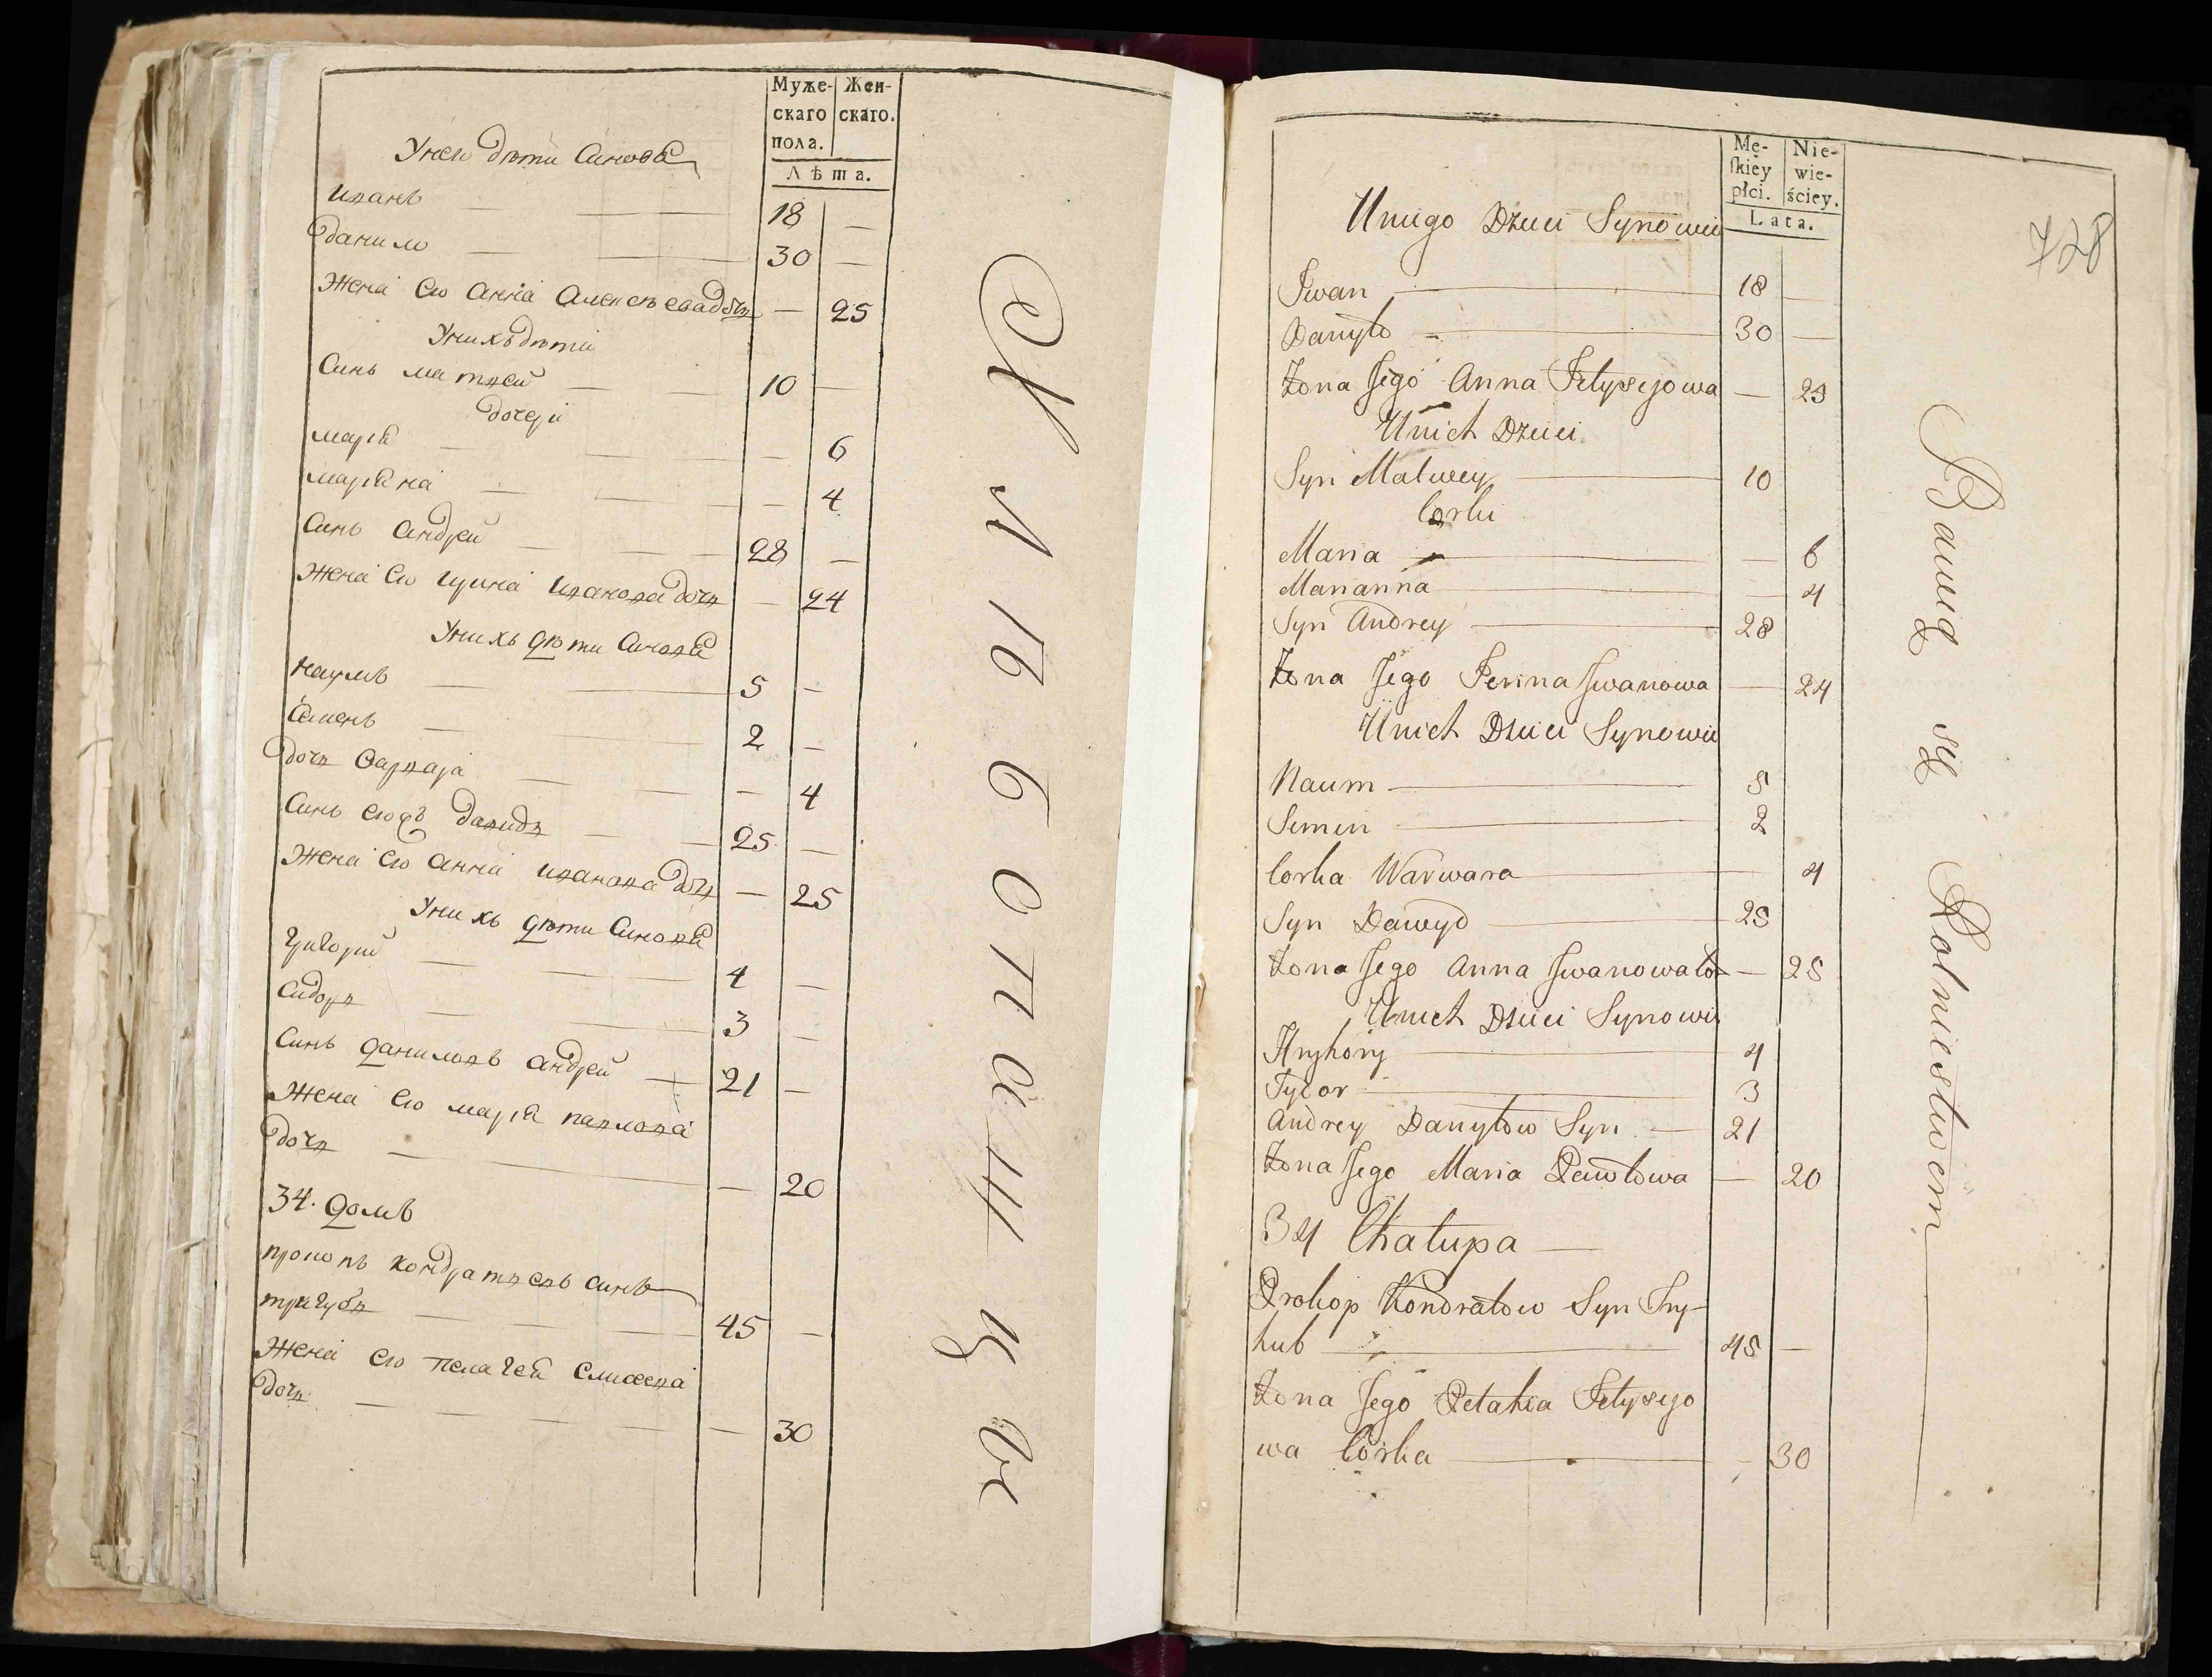 Муже-
скаго
пола.
Жен-
скаго.
Лѣта.
Унего дѣти Синовѣ
иванъ — — 18 —
данило — — 30 —
Жена его анна Алексѣева дочь — 25
Унихъ дѣти
Синъ матвей — — 10 —
дочери
марія — — — 6
маріана — — — 4
Синъ андрей — — 28 —
Жена его ирина иванова дочь — 24
Унихъ дѣти Синовѣ
наумъ — — 5 —
Семенъ — — 2 —
дочь варвара — — — 4
Синъ давидъ — — 25 —
Жена его анна иванова дочь — 25
Унихъ дѣти Синовѣ
григорий — — 4 —
Сидоръ — — 3 —
Синъ даниловъ андрей — 21 —
Жена его марія павлова
дочь — — — 20
34. домъ
прокопъ кондратьевъ синъ
тригубъ — — — 45 —
Жена его пелагея
дочь — — — — — 30
Mę-
skiey
płci.
Nie-
wie-
ściey.
Lata.
728
Uniego Dzieci Synowie
Iwan — 18 —
Danyło — 30 —
Żona Jego Anna Fełysejowa — 25
Unich Dzieci
Syn Matwey — 10
Corki
Maria — — 6
Marianna — — 4
Syn Andrey — 28
Żona Jego Jerina Iwanowa — 24
Unich Dzieci Synowie
Naum — 5
Semen — 2
Corka Warwara — 4
Syn Dawyd — 25
Żona Jego Anna Iwanowa Cor — 25
Unich Dzieci Synowie
Hryhory — 4
Sydor — 3
Andrey Danyłow Syn — 21
Żona Jego Maria Pawłowa — 20
34 Chałupa —
Prokop Kondratow Syn Try-
hub — 45 —
Żona Jego Pełahia Fełysejo
wa Corka — — 30
Bawią się Rolniestwem —